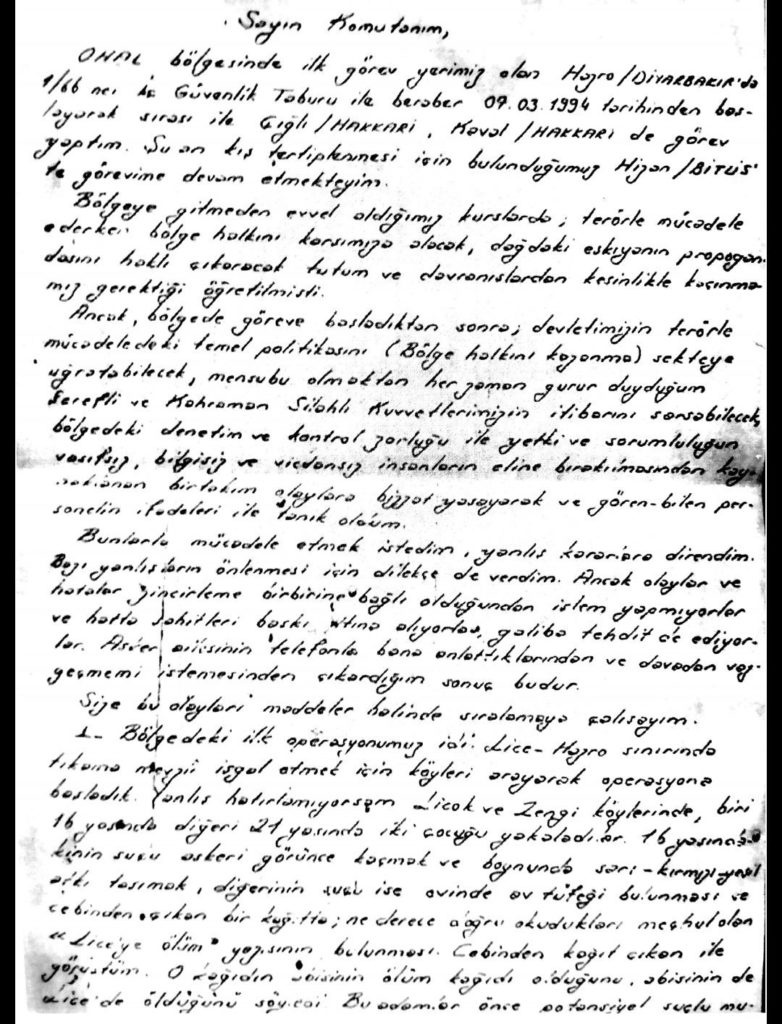 Sayın Komutanım,
OHAL bölgesinde ilk görev yerimiz olan Hazro/DİYARBAKIR'da
1/66 ncı İç Güvenlik Taburu ile beraber 07.03.1994 tarihinden baş-
layarak sırası ile Çığlı/HAKKARİ, Kaval/HAKKARİ de görev
yaptım. Şu an kış tertiplenmesi için bulunduğumuz Hizan/BİTLİS'
te görevime devam etmekteyim.
Bölgeye gitmeden evvel aldığımız kurslarda; terörle mücadele
ederken bölge halkını karşımıza alacak, dağdaki eşkıyanın propogan-
dasını haklı çıkaracak tutum ve davranışlardan kesinlikle kaçınma-
mız gerektiği öğretilmişti.
Ancak, bölgede göreve başladıktan sonra; devletimizin terörle
mücadeledeki temel politikasını (Bölge halkını kazanma) sekteye
uğratabilecek, mensubu olmaktan her zaman gurur duyduğum
Şerefli ve Kahraman Silahlı Kuvvetlerimizin itibarını sarsabilecek,
bölgedeki denetim ve kontrol zorluğu ile yetki ve sorumluluğun
vasıfsız, bilgisiz ve vicdansız insanların eline bırakılmasından kay-
naklanan birtakım olaylara bizzat yaşayarak ve gören-bilen per-
sonelin ifadeleri ile tanık oldum.
Bunlarla mücadele etmek istedim, yanlış kararlara direndim.
Bazı yanlışların önlenmesi için dilekçe de verdim. Ancak olaylar ve
hatalar zincirleme birbirine bağlı olduğundan işlem yapmıyorlar
ve hatta şahitleri baskı altına alıyorlar, galiba tehdit de ediyor-
lar. ailesinin telefonla bana anlattıklarından ve davadan vaz-
geçmemi istemesinden çıkardığım sonuç budur.
Size bu olayları maddeler halinde sıralamaya çalışayım.
1- Bölgedeki ilk operasyonumuz idi. Lice-Hazro sınırında
tıkama mevzii işgal etmek için köyleri arayarak operasyona
başladık. Yanlış hatırlamıyorsam Licok ve Zengi köylerinde, biri
16 yaşında diğeri 21 yaşında iki çocuğu yakaladılar. 16 yaşında-
kinin suçu askeri görünce kaçmak ve boynunda sarı-kırmızı-yeşil
atkı taşımak, diğerinin suçu ise evinde av tüfeği bulunması ve
cebinden çıkan bir kağıtta; ne derece doğru okudukları meçhul olan
"Lice'ye ölüm" yazısının bulunması. Cebinden kağıt çıkan ile
görüştüm. O kağıdın abisinin ölüm kağıdı olduğunu, abisinin de
Lice'de öldüğünü söyledi Bu adamlar önce potansiyel suçlu mu-